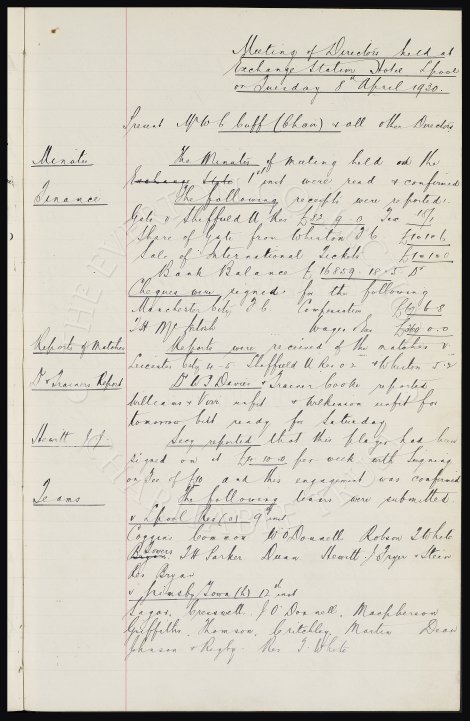 Meeting of Directors held at
Exchange Station Hotel Lpool
on Tuesday 8th April 1930.
Present Mr W C Cuff (Chair) & all other Directors
Minutes
The Minutes of meeting held on the
1st inst were read & confirmed
Finance
The following receipts were reported.
Gate v Sheffield U Res £82 . 9 . 0 Tax 15/1
Share of Gate from Wheaton F C £10.10.6
Sale of International Tickets
Bank Balance £16859 . 18 . 5 Dr
Cheques were signed for the following
Manchester City F C Compensation
T H McIntosh Wages &c
Reports of Matches
Reports were received of the matches v
Leicester City 4-5. Sheffield U Res 0 2 & 5-2
Dr & Trainers Report
Dr W J Davies & Trainer Cooke reported
Williams & Virr unfit & Wilkinson unfit for
tomorrow but ready for Saturday
Hewitt J J.
Secy reported that this player had been
signed on at £4.10.0 per week with signing
on Fee of £10 and this engagement was confirmed
Teams
The following teams were submitted
v Lpool Res (a) 9th inst
Coggins Common W O'Donnell Robson T White
Towers T H Parker Dunn Hewitt J Fryer & Stein
Res Bryan
v Grimsby Town (h) 12th inst
Sagar. Cresswell. J O'Donnell. Macpherson
Griffiths. Thomson. Critchley. Martin Dean
Johnson & Rigby. Res T. White